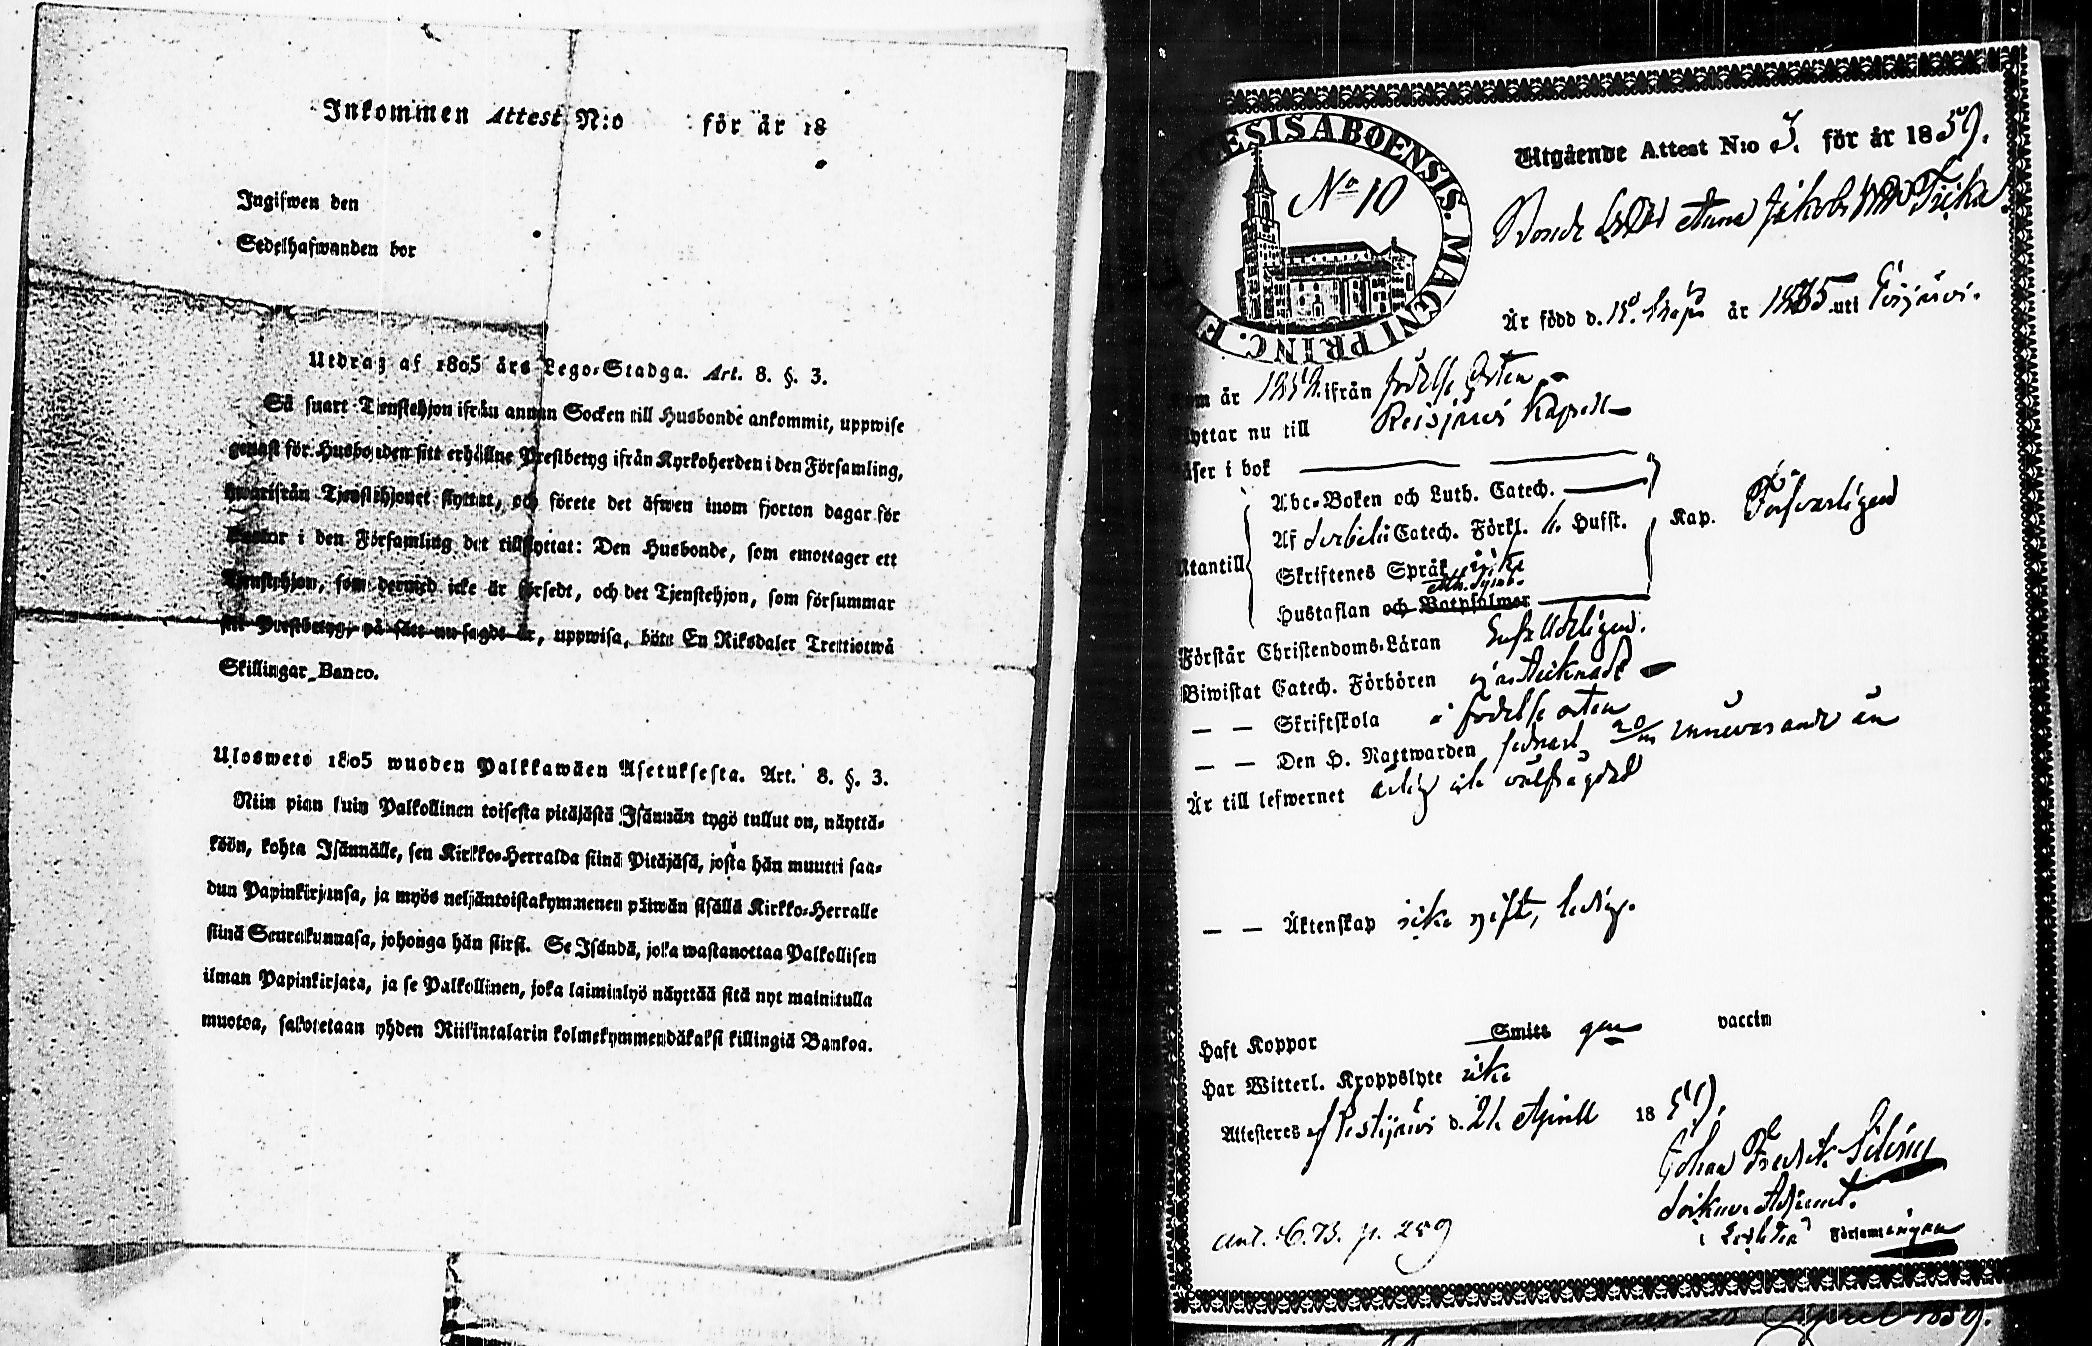 Inkommen Attest N:o för år 18
Ingifwen den
Sedelhafwanden bor
Utdrag af 1805 års Lego-Stadga. Art. 8. §. 3.
Så snart Tjenstehjon ifrån annan Socken till Husbonde ankommit, uppwise
genast för Husbonden sitt erhållne Prestbetyg ifrån Kyrkoherden i den Församling,
hwarifrån Tjenstehjonet flyttat, och förete det äfwen inom fjorton dagar för
Pastor i den Församling det tillflyttat: Den Husbonde, som emottager ett
Tjenstehjon, som dermed icke är försedt, och det Tjenstehjon, som försummar
sitt Prestbetyg, på sätt nu sagdt är, uppwisa, böte En Riksdaler Trettiotwå
Skillingar Banco.
Ulosweto 1805 wuoden Palkkawäen Asetuksesta. Art. 8. §. 3.
Niin pian kuin Palkollinen toisesta pitäjästä Isännän tygö tullut on, näyttä-
köön, kohta Isännälle, sen Kirkko-Herralda siinä Pitäjäsä, josta hän muutti saa-
dun Papinkirjansa, ja myös neljäntoistakymmenen päiwän sisällä Kirkko-Herralle
siinä Seurakunnasa, johonga hän siirsi. Se Isändä, joka wastanottaa Palkollisen
ilman Papinkirjata, ja se Palkollinen, joka laiminlyö näyttää sitä nyt mainitulla
muotoa, sakotetaan yhden Riikintalarin kolmekymmendäkaksi killingiä Bankoa.
ESIS ABOENSIS. MAGNI PRINC. F
No 10
Utgående Attest N:o 3. för år 1859.
Bonde Anna Jakobs
Är född d. 15. år 1835 uti
om år ifrån födelse Orten
lyttar nu till Reisjärvi Kapell
äser i bok
Utantill
Abc-Boken och Luth. Catech.
Af Catech. Förkl. Hufst.
Skriftenes Språk icke
Ath. Symb.
Hustaflan och Botpsalmer
Kap. Försvarligen
Förstår Christendoms-Läran Enfalldeligen.
Biwistat Catech. Förhören ej antecknadt
— — Skriftskola i födelse orten
— — Den H. Nattwarden sednast 20/ innevarande år
Är till lefwernet ärlig och välfrägdad
— — Äktenskap icke gift, ledig.
Haft Koppor Smitt gm vaccin
Har Witterl. Kroppslyte icke
Attesteres af Lestijärvi d. 21 April 1859.
Johan Fredrik
Adjunct.
i Församlingen
Ant. C.B. p. 259
April 1859.